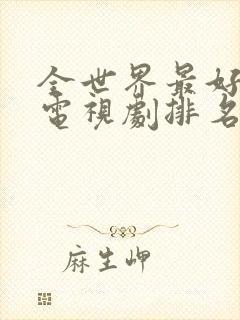 全世界最好
電視劇排名
麻生岬